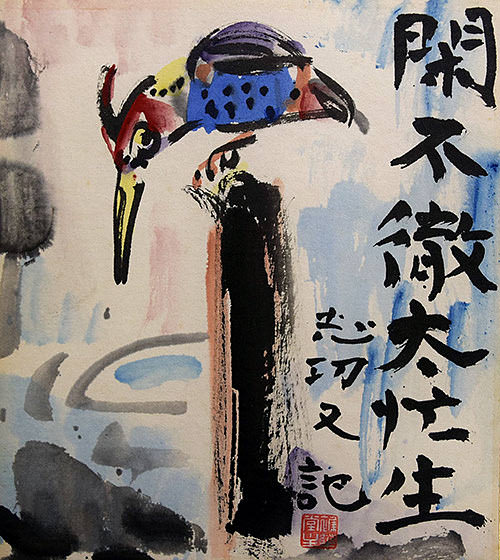 閑不徹太忙生
志功又記